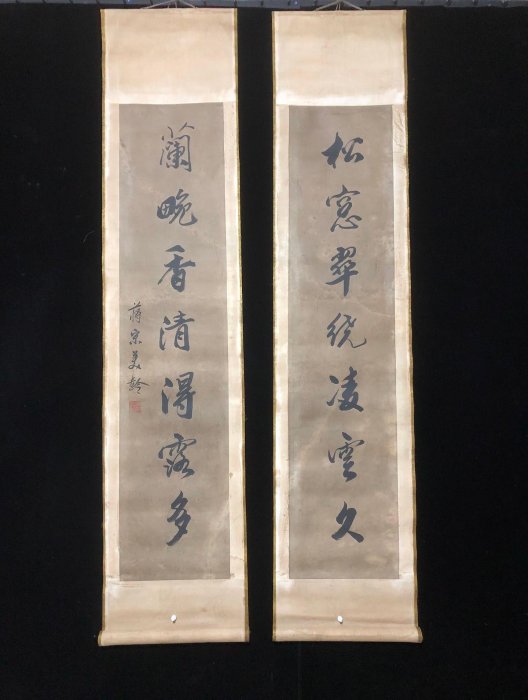 松窓翠繞凌雲久
蘭畹香清得露多
蔣宋美齡